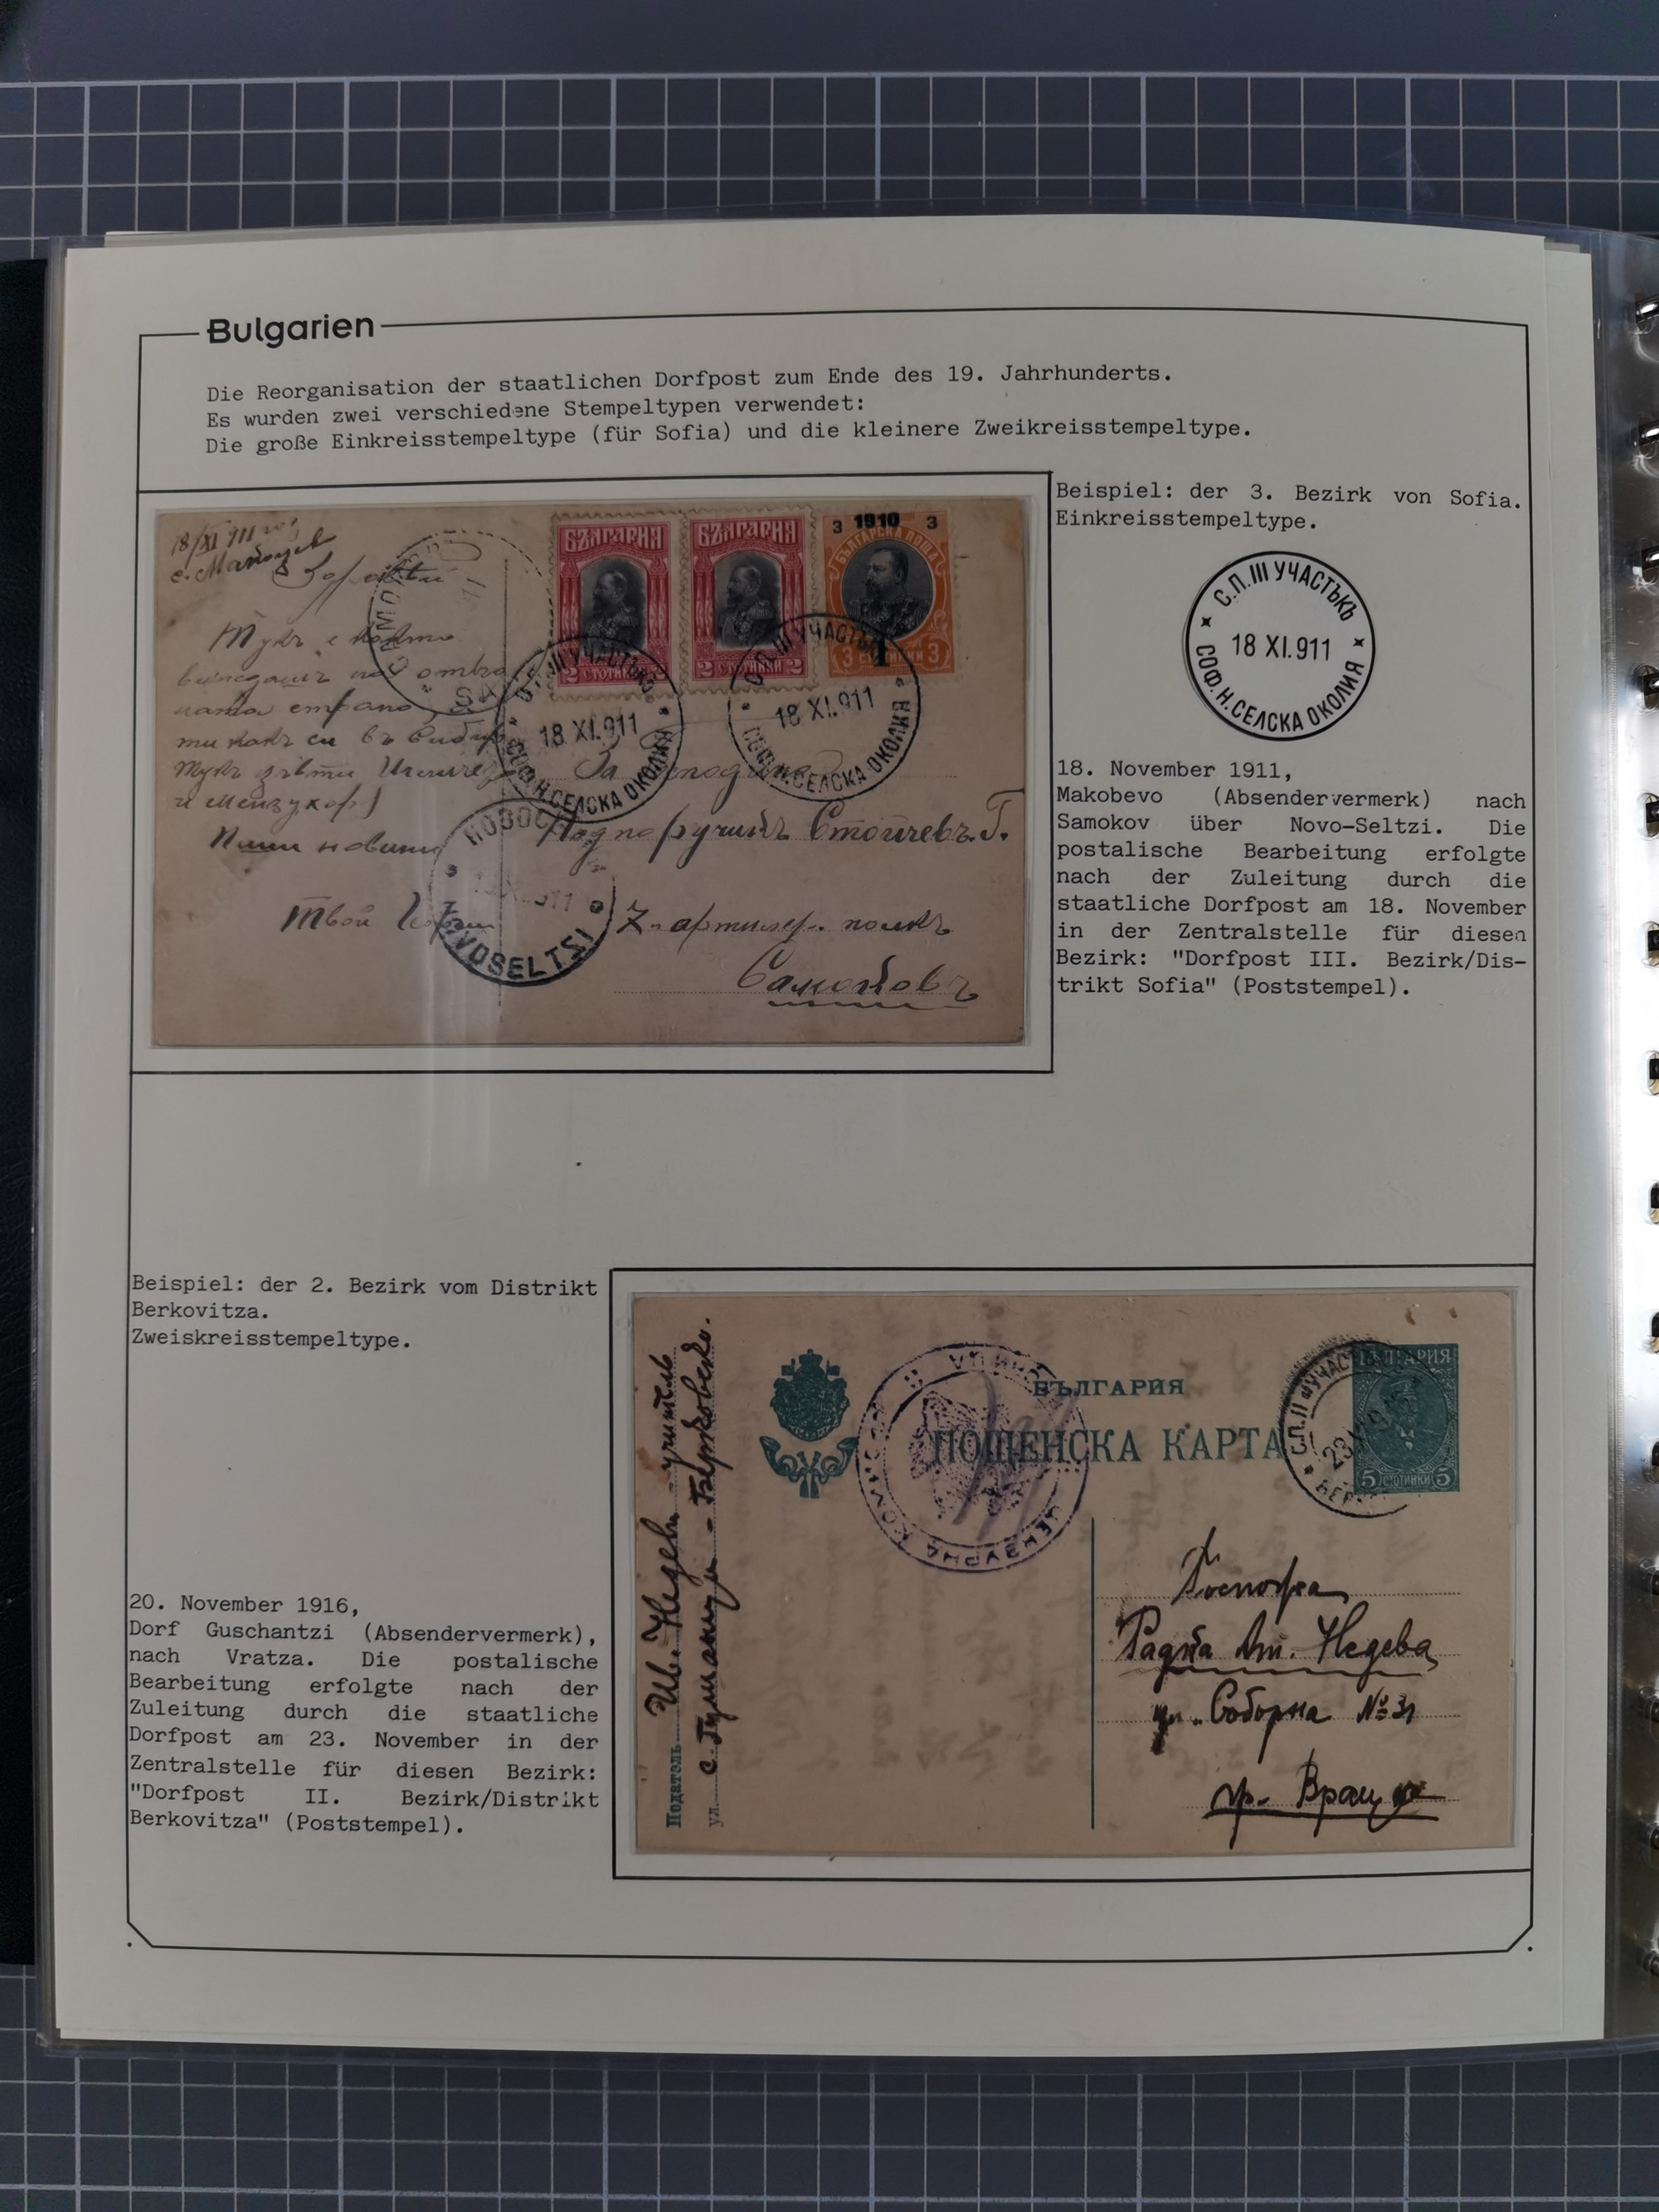 Bulgarien
Die Reorganisation der staatlichen Dorfpost zum Ende des 19. Jahrhunderts.
Es wurden zwei verschiedene Stempeltypen verwendet:
Die große Einkreisstempeltype (für Sofia) und die kleinere Zweikreisstempeltype.
Beispiel: der 3. Bezirk von Sofia.
Einkreisstempeltype.
С.П. III УЧАСТЪКЪ
18 XI.911
СОФ.Н.СЕЛСКА ОКОЛИЯ
18. November 1911,
Makobevo (Absendervermerk) nach
Samokov über Novo-Seltzi. Die
postalische Bearbeitung erfolgte
nach der Zuleitung durch die
staatliche Dorfpost am 18. November
in der Zentralstelle für diesen
Bezirk: "Dorfpost III. Bezirk/Dis-
trikt Sofia" (Poststempel).
БЪЛГАРИЯ
2 СТОТИНКИ 2
БЪЛГАРИЯ
2 СТОТИНКИ 2
3 1910 3
БЪЛГАРСКА ПОЩА
1
3 СТОТИНКИ 3
18/XI 911
III УЧАСТЪКЪ
18 XI.911
СОФ.Н.СЕЛСКА ОКОЛИЯ
III УЧАСТЪКЪ
18 XI.911
СОФ.Н.СЕЛСКА ОКОЛИЯ
За
Подпоручикъ Стойчевъ. Г.
Пиши новини
Твой
7. артилер. полкъ
Самоковъ
Beispiel: der 2. Bezirk vom Distrikt
Berkovitza.
Zweiskreisstempeltype.
20. November 1916,
Dorf Guschantzi (Absendervermerk),
nach Vratza. Die postalische
Bearbeitung erfolgte nach der
Zuleitung durch die staatliche
Dorfpost am 23. November in der
Zentralstelle für diesen Bezirk:
"Dorfpost II. Bezirk/Distrikt
Berkovitza" (Poststempel).
БЪЛГАРИЯ
ПОЩЕНСКА КАРТА
ЦЕНЗУРНА КОМИСИЯ
БЪЛГАРИЯ
5 СТОТИНКИ 5
С.П. II УЧАС
23
Податель Ив. Недевъ - учитель
ул. с. Гушанци - Берковско.
Госпожа
Радка Ат. Недева
ул. „Соборна №31
гр. Враца